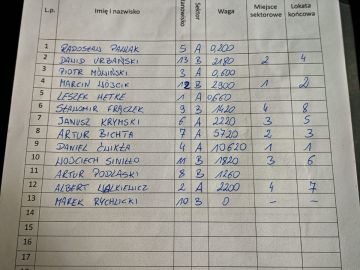 L.p. Imię i nazwisko Stanowisko Sektor Waga Miejsce sektorowe Lokata końcowa
1 RADOSŁAW PAWLAK 5 A 0,200
2 DAWID URBAŃSKI 13 B 2180 2 4
3 PIOTR 3 A 0,600
4 MARCIN WÓJCIK 12 B 2900 1 2
5 LESZEK HETKE 1 A 0,660
6 SŁAWOMIR FRĄCZEK 9 B 1420 4 8
7 JANUSZ KRYMSKI 6 A 2220 3 5
8 ARTUR BICHTA 7 A 5720 2 3
9 DANIEL ĆWIKŁA 4 A 10620 1 1
10 WOJCIECH SINIŁŁO 11 B 1820 3 6
11 ARTUR PODLASKI 8 B 1260
12 ALBERT WALKIEWICZ 2 A 2200 4 7
13 MAREK RYCHLICKI 10 B 0 - -
14
15
16
17
18